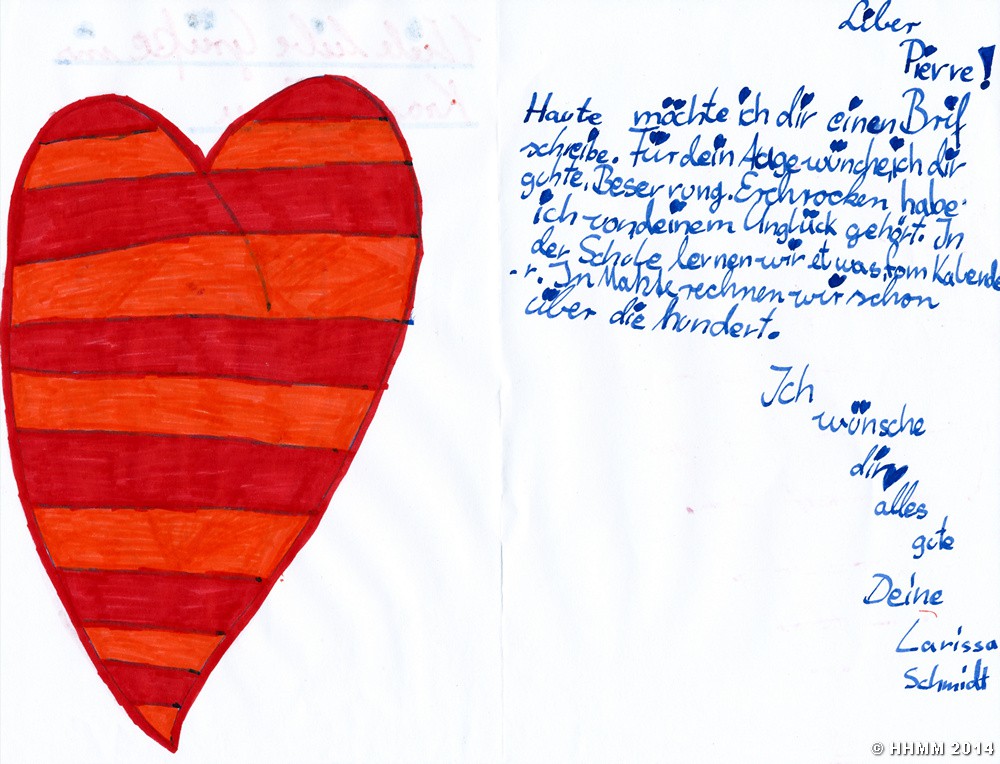 Liber
Pierre!
Haute möchte ich dir einen Brif
schreibe. Für dein Auge wünche, ich dir
gohte, Beserrung. Erschrocken habe
ich von deinem Unglück gehört. In
der Schule lernen wir etwas fom Kalende
-r. In Mahte rechnen wir schon
über die hundert.
Ich
wünsche
dir
alles
gute
Deine
Larissa
Schmidt
© HHMM 2014